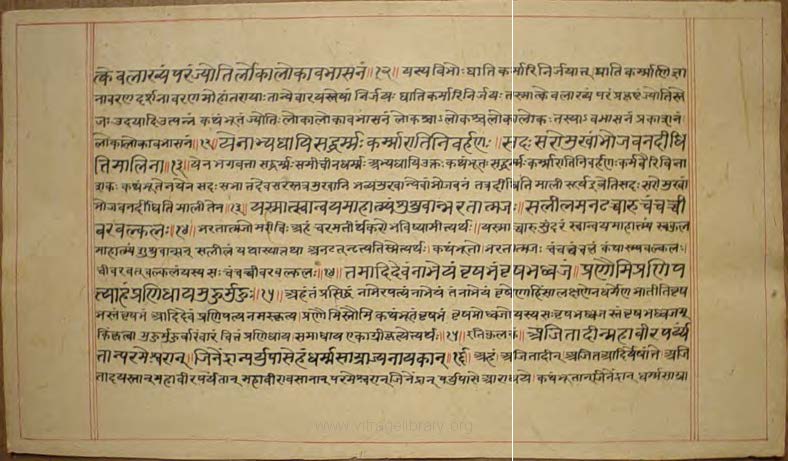 त्केवलाख्यं परंज्योतिर्लोकालोकावभासनं॥१२॥ यस्य विभोः घातिकर्मारिनिर्जयात् घातिकर्माणि ज्ञा
नावरणदर्शनावरणमोहांतरायाः तान्येवारयस्तेषां निर्जयः घातिकर्मारिनिर्जयः तस्मात् केवलाख्यं परं प्रकृष्टं ज्योतिस्ते
जः उदयादि उत्पन्नं कथंभूतं ज्योतिः लोकालोकावभासनं लोकश्चाऽलोकश्चलोकालोकः तस्याऽवभासनं प्रकाशनं
लोकालोकावभासनं॥१२॥ येनाभ्यधायिसद्धर्मः कर्मारातिनिबर्हणः॥ सदः सरोमुखांभोजवनदीधि
तिमालिना॥१३॥ येन भगवता सद्धर्मः समीचीनधर्मः अभ्यधायि उक्तः कथंभूतः सद्धर्मः कर्मारातिनिबर्हणः कर्मवैरिविना
शकः कथंभूतेन येन सदः सभा तदेव सरस्तत्र मुखानि भव्यमुखान्येवांभोजवनं तत्र दीधितिमाली सूर्य इवेति सदः सरोमुखां
भोजवनदीधितिमाली तेन॥१३॥ यस्मात्स्वान्वयमाहात्म्यंशुश्रुवान्भरतात्मजः॥ सलीलमनटच्चारु चंचच्ची
वरवल्कलः॥१४॥ भरतात्मजो मरीचिः अहं चरमतीर्थकरो भविष्यामीत्यर्थः॥ यस्माच्चारु सुंदरं स्वान्वयमाहात्म्यं स्वकुल
माहात्म्यं शुश्रुवान्सन् सलीलं यथास्यात्तथा अनटत् नृत्यतिस्मेत्यर्थः। कथंभूतो भरतात्मजः चंचच्चंचलं कंथासमवल्कलः।
चीवरवत् वल्कलं यस्य सः चंचच्चीवरवल्कलः॥१४॥ तमादिदेवं नाभेयं वृषभंवृषभध्वजं॥ प्रणौमि प्रणिप
त्याहंप्रणिधायमुहुर्मुहुः॥१५॥ अहं तं प्रसिद्धं नाभेरपत्यं नाभेयं तं नाभेयं वृषेण हिंसा लक्षणेन धर्मेण भातीति वृष
भस्तं वृषभं आदिदेवं प्रणिपत्य नमस्कृत्य प्रणौमि स्तौमि कथंभूतं वृषभं वृषभो ध्वजो यस्य सः वृषभध्वजस्तं वृषभध्वजम्
किंकृत्वा मुहुर्मुहुर्वारंवारं चित्तं प्रणिधाय समाधाय एकाग्रीकृत्येत्यर्थः॥१५॥ इति कुलकं॥ अजितादीन्महावीरपर्यं
तान्परमेश्वरान्॥ जिनेंद्रान्पर्युपासेहंधर्मसाम्राज्यनायकान्॥१६॥ अहं अजितादीन् अजित आदिर्येषां ते अजि
तादयस्तान् महावीरपर्यंतान् महावीरावसानान् परमेश्वरान् जिनेंद्रान् पर्युपासे आराधये। कथंभूतान् जिनेंद्रान् धर्मसाम्रा
www.vitragelibrary.org